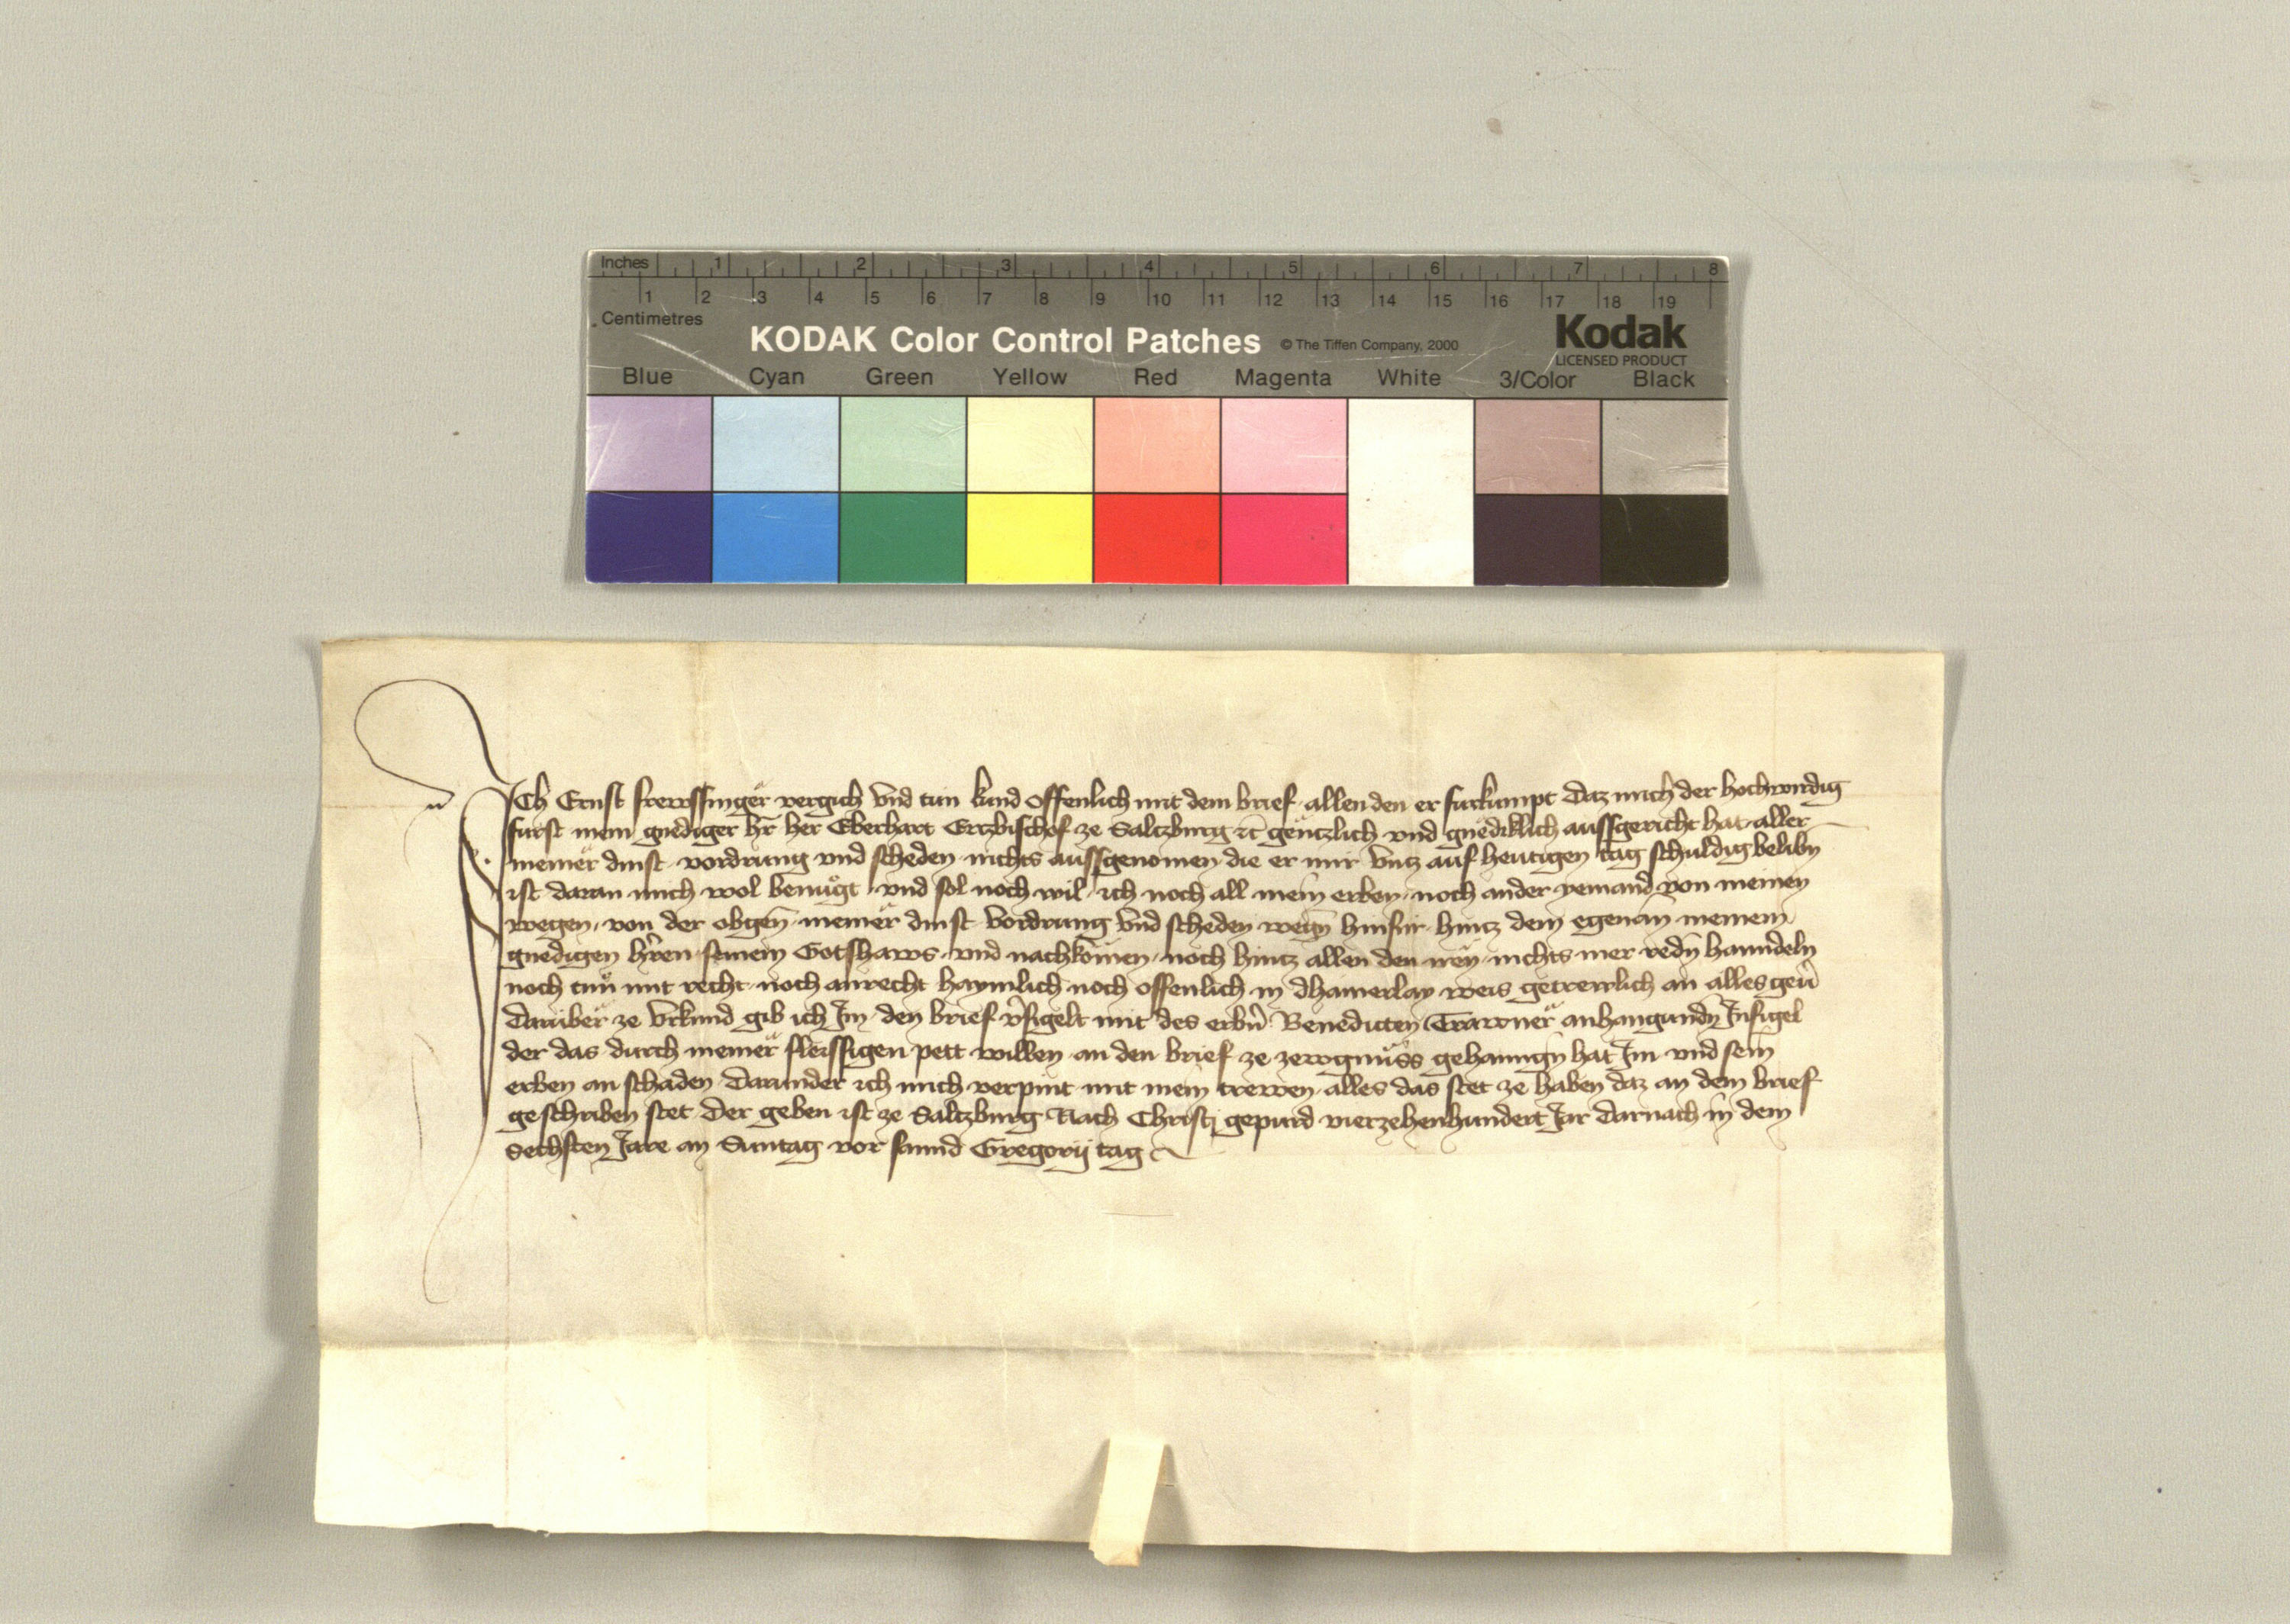 Inches 1 2 3 4 5 6 7 8
1 2 3 4 5 6 7 8 9 10 11 12 13 14 15 16 17 18 19
Centimetres
KODAK Color Control Patches © The Tiffen Company, 2000 Kodak
LICENSED PRODUCT
Blue Cyan Green Yellow Red Magenta White 3/Color Black
Ich Ernst vergich vnd tun kund offenlich mit dem brief allen den er furkumpt daz mich der hochwirdig
furst mein gnediger hr̄ her Eberhart Ertzbischof ze Saltzburg ꝛc̄ gentzlich vnd gnediklich aussgericht hat aller
meiner dinst vordrung vnd scheden nichts aussgenomen die er mir vntz auf heutigen tag schuldig belibn̄
ist daran mich wol benugt vnd sol noch wil ich noch all mein erben noch ander yemand von meinen
wegen von der obgen̄ meiner dinst vordrung vnd scheden wegn̄ hinfur hintz dem egenan̄ meinem
gnedigen hr̄en seinem Gotshaws vnd nachkomen noch hintz allen den irn̄ nichts mer redn̄ hanndeln
noch tun mit recht noch anrecht haymlich noch offenlich in dhainerlay weis getrewlich an alles geu̅
Daruber ze vrkund gib ich Im den brief v̅sigelt mit des erbn̄ Benedicten Trawner anhangundn̄ Insigel
der das durch meiner fleissigen pett willen an den brief ze zewgnuss gehanngn̄ hat Im vnd sein
erben an schaden Darunder ich mich verpint mit mein trewen alles das stet ze haben daz an dem brief
geschriben stet Der geben ist ze Saltzburg Nach Christi gepurd vierzehenhundert Jar darnach in dem
Sechsten Jare an Suntag vor sannd Gregorij tag